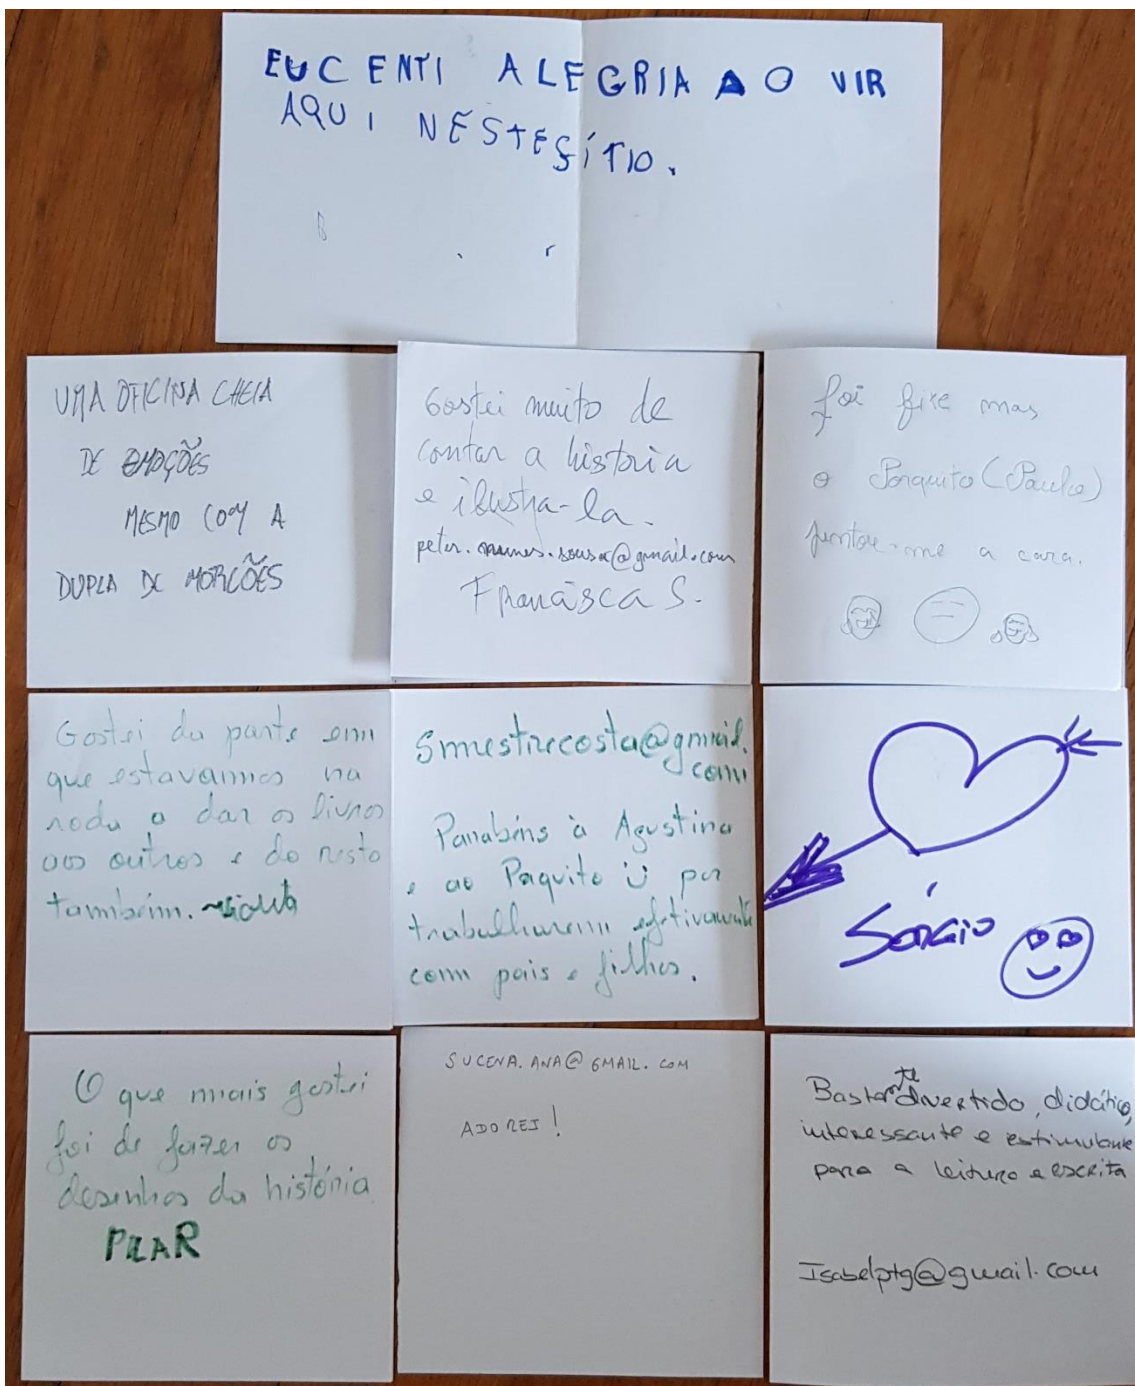 EU CENTI ALEGRIA AO VIR
AQUI NESTE SÍTIO.
UMA OFICINA CHEIA
DE EMOÇÕES
MESMO COM A
DUPLA DE MORCÕES
Gostei muito de
contar a historia
e ilustra-la.
peter.nunes.sousa@gmail.com
Francisca S.
foi fixe mas
o Paquito (Paulo)
pintou-me a cara.
Gostei da parte em
que estavamos na
roda a dar os livros
aos outros e do resto
também.
Smestrecosta@gmail.
com
Parabéns à Agustina
e ao Paquito Ü por
trabalharem efetivamente
com pais e filhos.
Sérgio
O que mais gostei
foi de fazer os
desenhos da história
PILAR
SUCENA.ANA@GMAIL.COM
ADOREI!
Bastante divertido, didático,
interessante e estimulante
para a leitura e escrita
Isabelptg@gmail.com